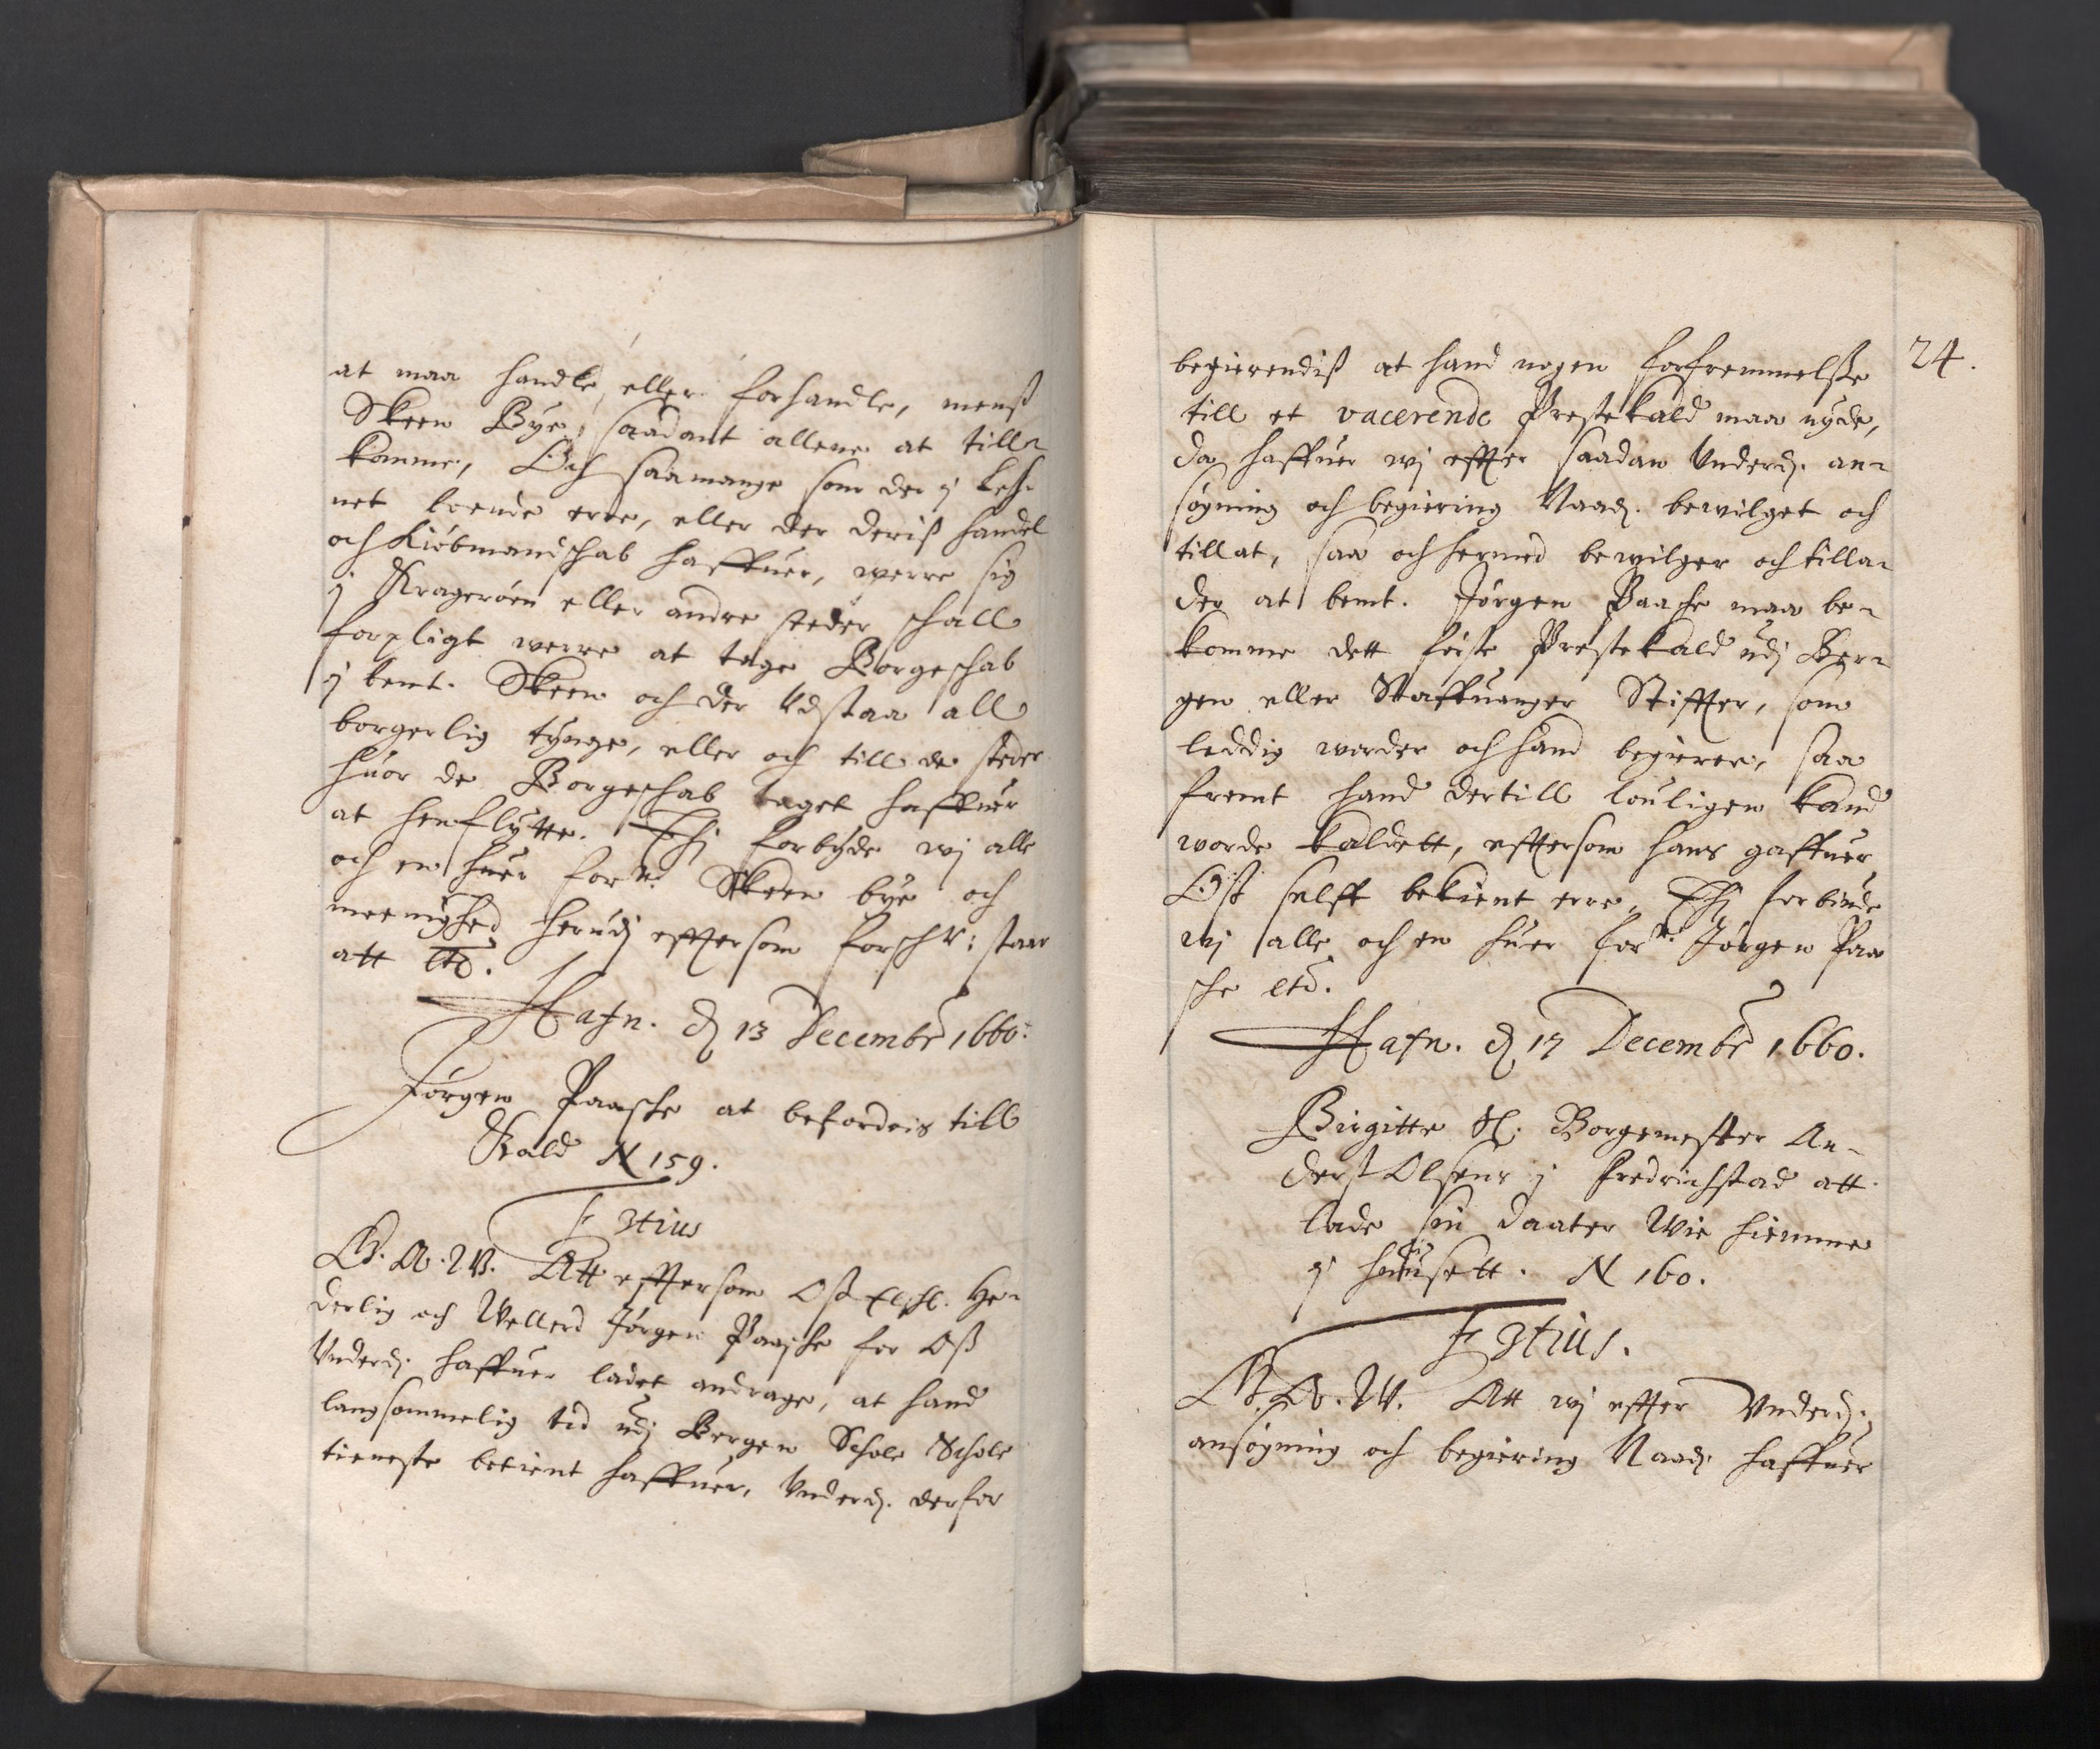 at maa handle, eller forhandle, menß
Skeen Bye, saadant allene at till-
komme, Och saamange som der j Leh-
net boende erre, eller der deriß handel
och Kiöbmandschab haffuer, werre sig
j Kragerøen eller andre steder schall
forpligt werre at tage Borgeschab
j bemt. Skeen och der Udstaa all
borgerlig tynge, eller och till de steder
huor de Borgeschab taget haffuer
at henflytte. Thj forbyde wj alle
och en huer forn. Skeen bye och
meenighed herudj efftersom forschr: staar
att etc.
Hafn. d 13 Decembr 1660:
Jörgen Paasche at befordris till
Kald N 159.
F 3tius
G. A. W. Att efftersom Oß Elschl. He-
derlig och Wellerd Jörgen Paasche for Oß
Underd. haffuer ladet andrage, at hand
langsommelig tid udj Bergen Schole Schole
tieneste betient haffuer, Underd. derfor
24.
begierendiß at hand nogen forfremmelße
till et vacerende Prestekald maa nyde,
da haffuer wj effter saadan Underd. an-
søgning och begiering Naad. bewilget och
tillat, saa och hermed bewilger och tilla-
der at bemt. Jörgen Paasche maa be-
komme dett første Prestekald udj Ber-
gen eller Staffuanger Stiffter, som
leddig worder och hand begierer, saa
fremt hand dertill louligen kand
worde kaldett, efftersom hans gaffuer
Oß selff bekient erre, Thj forbiude
wj alle och en huer forn. Jörgen Paa
sche etc.
Hafn. d 17 Decembr 1660.
Birgitte Sl. Borgemester An-
derß Olsens j Fredrichstad att
lade sin daater Wie hiemme
j huusett. N 160.
F 3tius.
G. A. W. Att wj effter Underd.
ansøgning och begiering Naad. haffuer